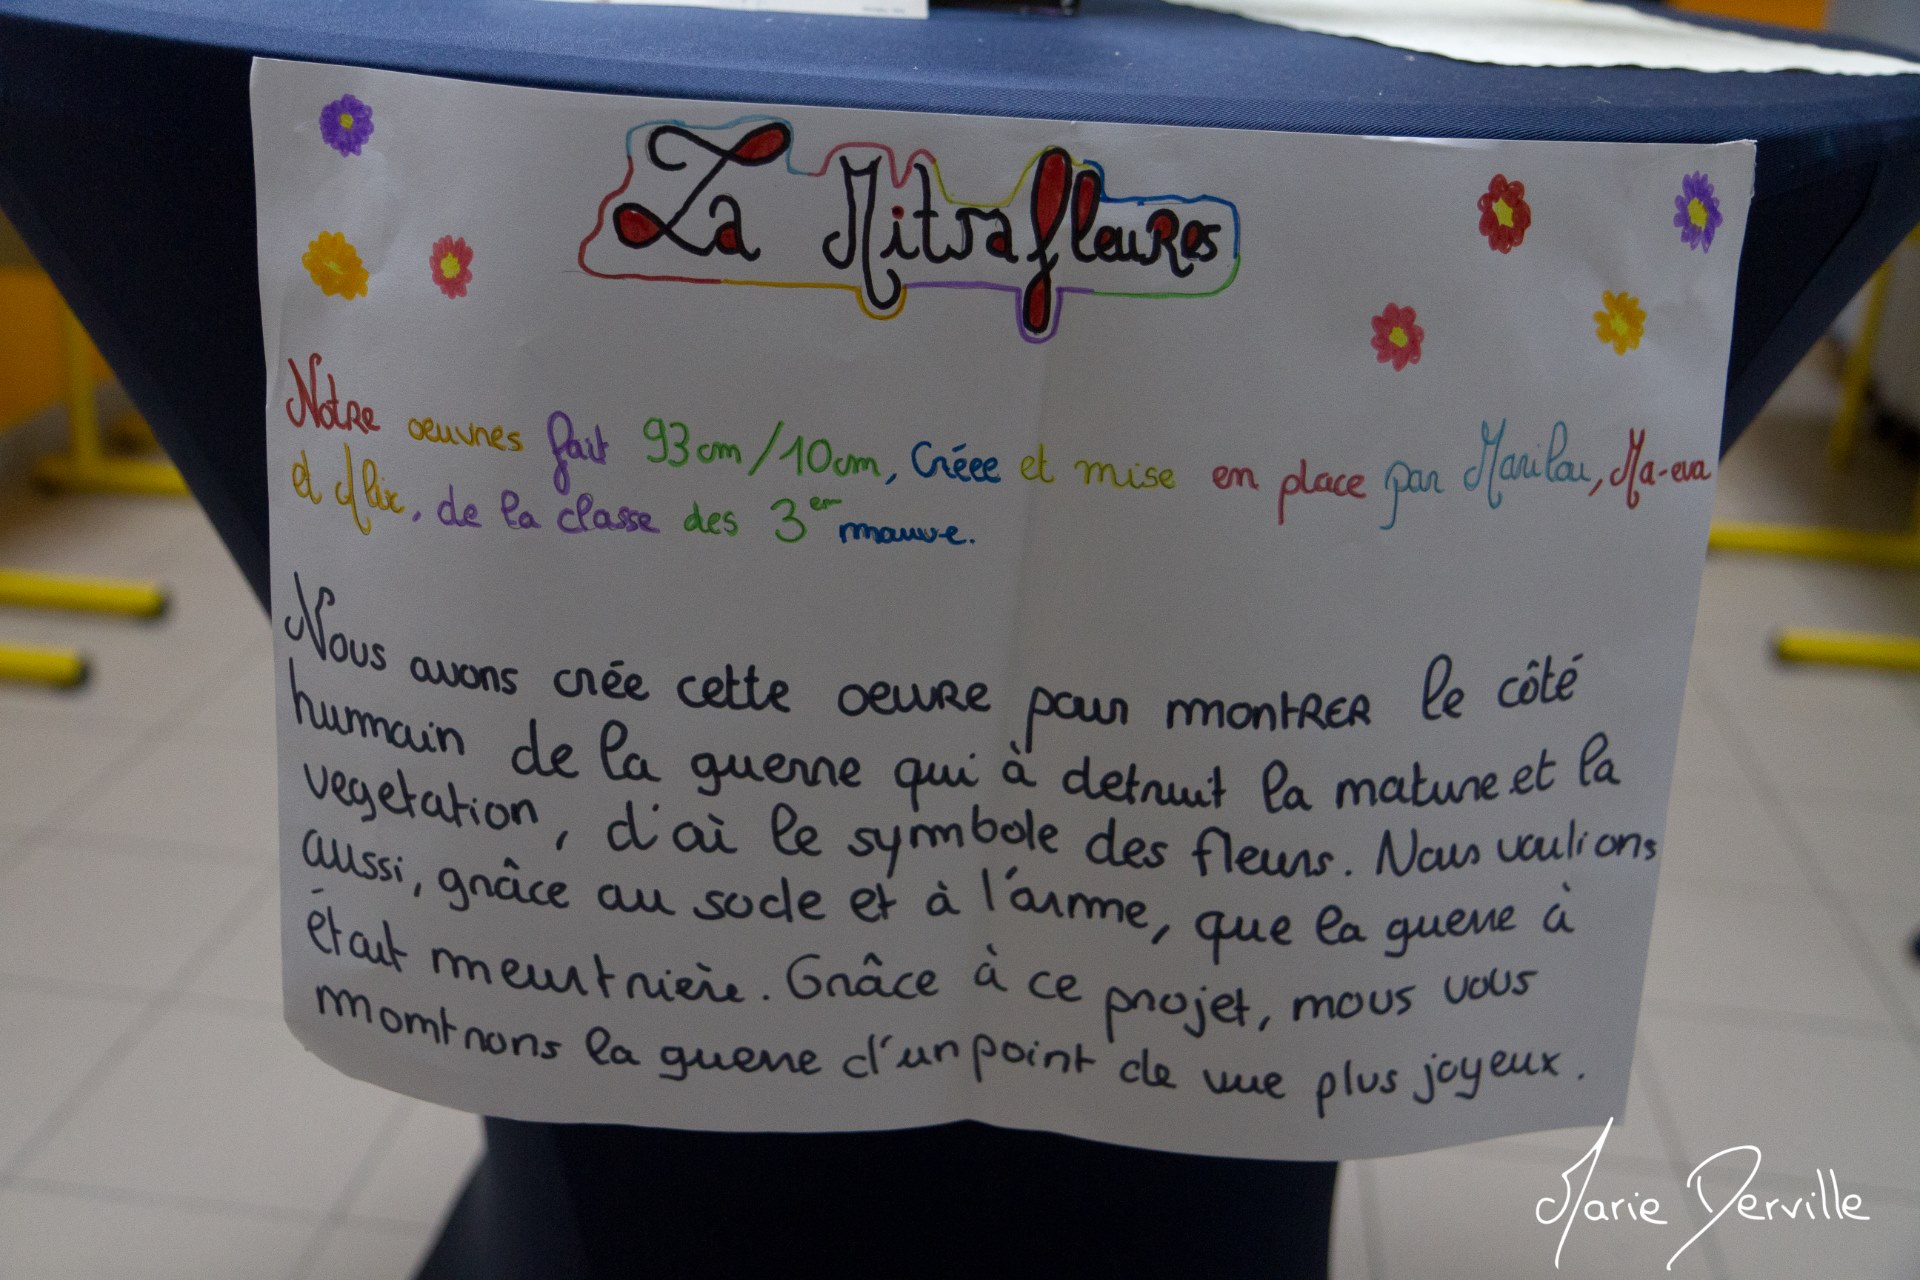 La Mitrafleures
Notre oeuvres fait 93cm/10cm, Créee et mise en place par Marilou, Ma-eva
et Alix, de la classe des 3em mauve.
Nous avons crée cette oeuvre pour montrer le côté
humain de la guerre qui à detruit la nature et la
vegetation, d'ai le symbole des fleurs. Nous voulions
aussi, grâce au socle et à l'arme, que la guerre à
était meurtrière. Grâce à ce projet, nous vous
montrons la guerre d'un point de vue plus joyeux.
Marie Derville